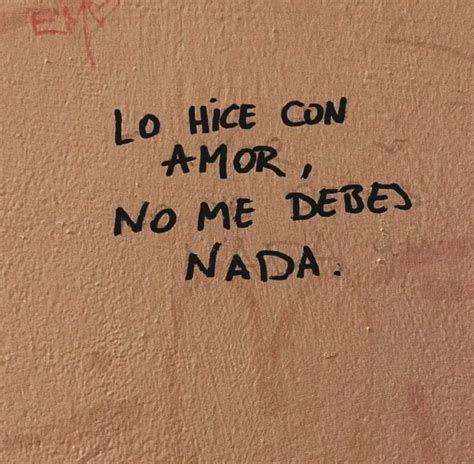 EM
LO HICE CON
AMOR,
NO ME DEBES
NADA.